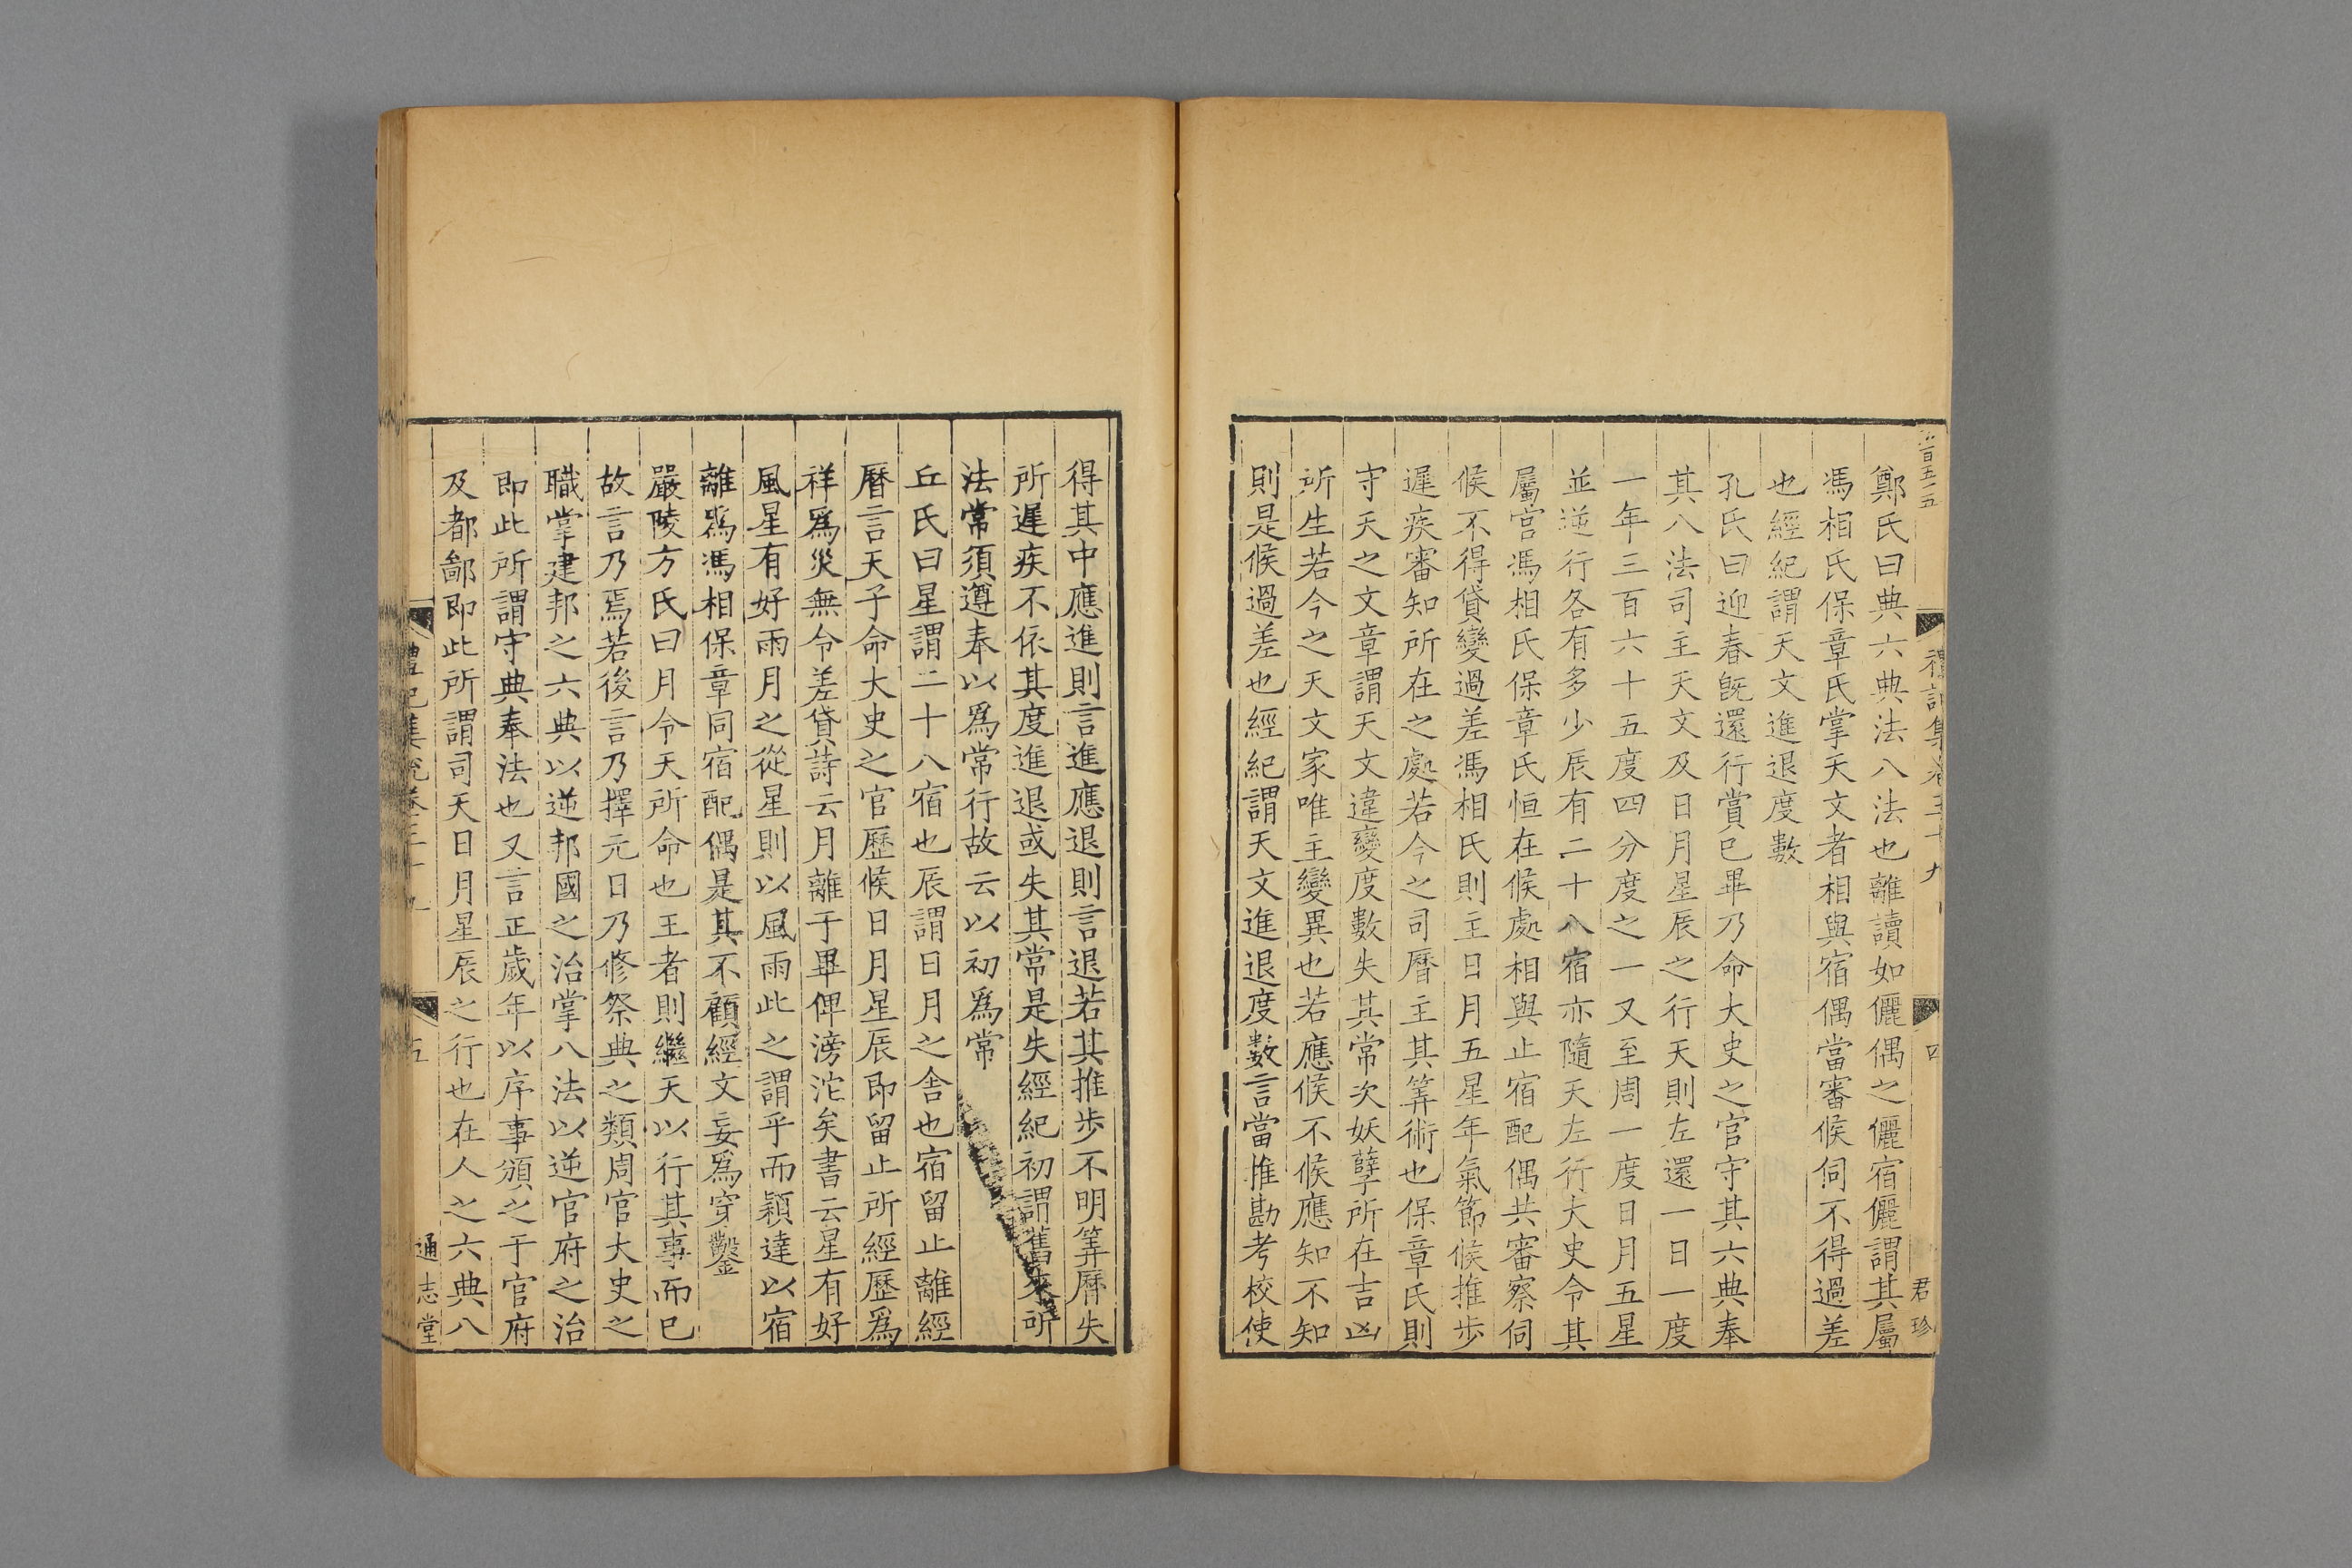 鄭氏曰典六典法八法也離讀如儷偶之儷宿儷謂其屬
馮相氏保章氏掌天文者相與宿偶當審候伺不得過差
也經紀謂天文進退度數
孔氏曰迎春旣還行賞已畢乃命大史之官守其六典奉
其八法司主天文及日月星辰之行天則左還一日一度
一年三百六十五度四分度之一又至周一度日月五星
並逆行各有多少辰有二十八宿亦隨天左行大史令其
屬官馮相氏保章氏恒在候處相與止宿配偶共審察伺
候不得貸變過差馮相氏則主日月五星年氣節候推步
遲疾審知所在之處若今之司曆主其筭術也保章氏則
守天之文章謂天文違變度數失其常次妖孽所在吉凶
所生若今之天文家唯主變異也若應候不候應知不知
則是候過差也經紀謂天文進退度數言當推勘考校使
君珍
得其中應進則言進應退則言退若其推步不明筭曆失
所遲疾不依其度進退或失其常是失經紀初謂舊來所
法常須遵奉以爲常行故云以初爲常
丘氏曰星謂二十八宿也辰謂日月之舍也宿留止離經
曆言天子命大史之官歷候日月星辰即留止所經歷爲
祥爲災無令差貸詩云月離于畢俾滂沱矣書云星有好
風星有好雨月之從星則以風雨此之謂乎而穎達以宿
離爲馮相保章同宿配偶是其不顧經文妄爲穿鑿
嚴陵方氏曰月令天所命也王者則繼天以行其事而已
故言乃焉若後言乃擇元日乃修祭典之類周官大史之
職掌建邦之六典以逆邦國之治掌八法以逆官府之治
即此所謂守典奉法也又言正歲年以序事頒之于官府
及都鄙即此所謂司天日月星辰之行也在人之六典八
禮記集說卷三十九
五
通志堂